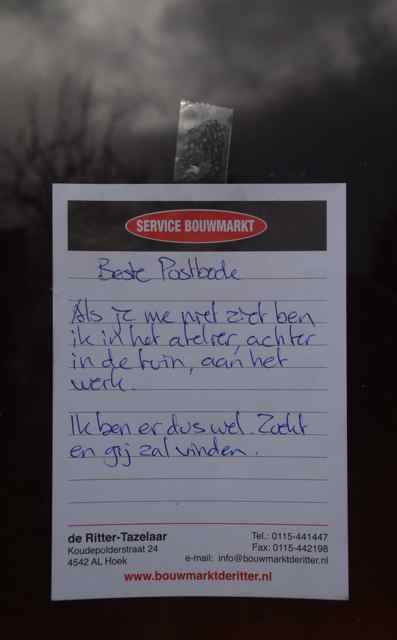 SERVICE BOUWMARKT
Beste Postbode
Als je me niet ziet ben
ik in het atelier, achter
in de tuin, aan het
werk.
Ik ben er dus wel. Zoekt
en gij zal vinden.
de Ritter-Tazelaar
Koudepolderstraat 24
4542 AL Hoek
Tel.: 0115-441447
Fax: 0115-442198
e-mail: info@bouwmarktderitter.nl
www.bouwmarktderitter.nl